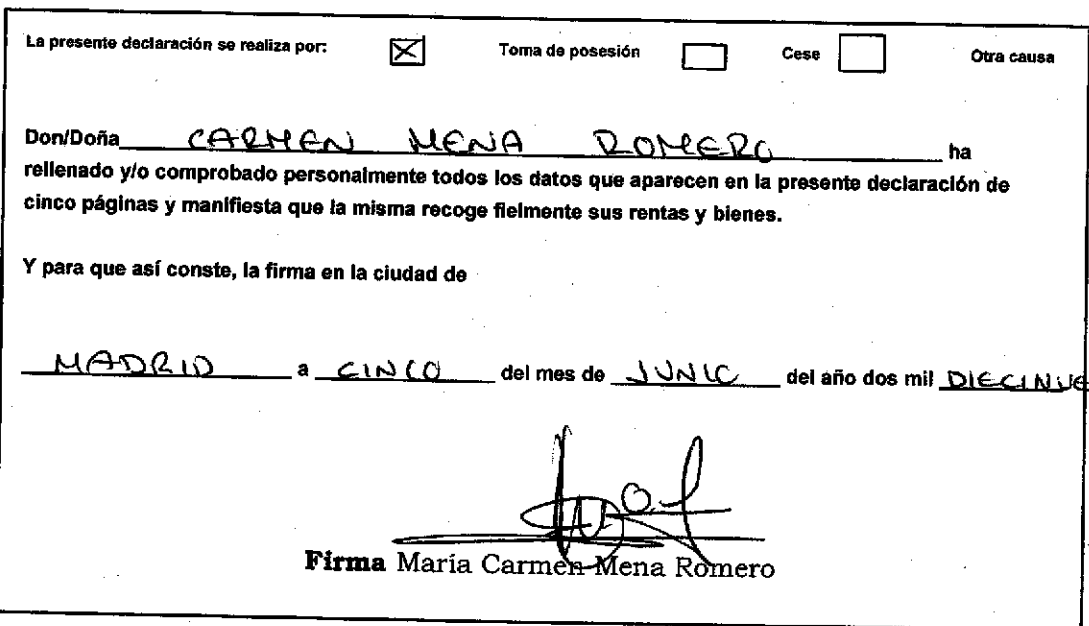 La presente declaración se realiza por: ☒ Toma de posesión ☐ Cese ☐ Otra causa
Don/Doña CARMEN MENA ROMERO ha
rellenado y/o comprobado personalmente todos los datos que aparecen en la presente declaración de
cinco páginas y manifiesta que la misma recoge fielmente sus rentas y bienes.
Y para que así conste, la firma en la ciudad de
MADRID a CINCO del mes de JUNIO del año dos mil DIECINUE
Firma María Carmen Mena Romero